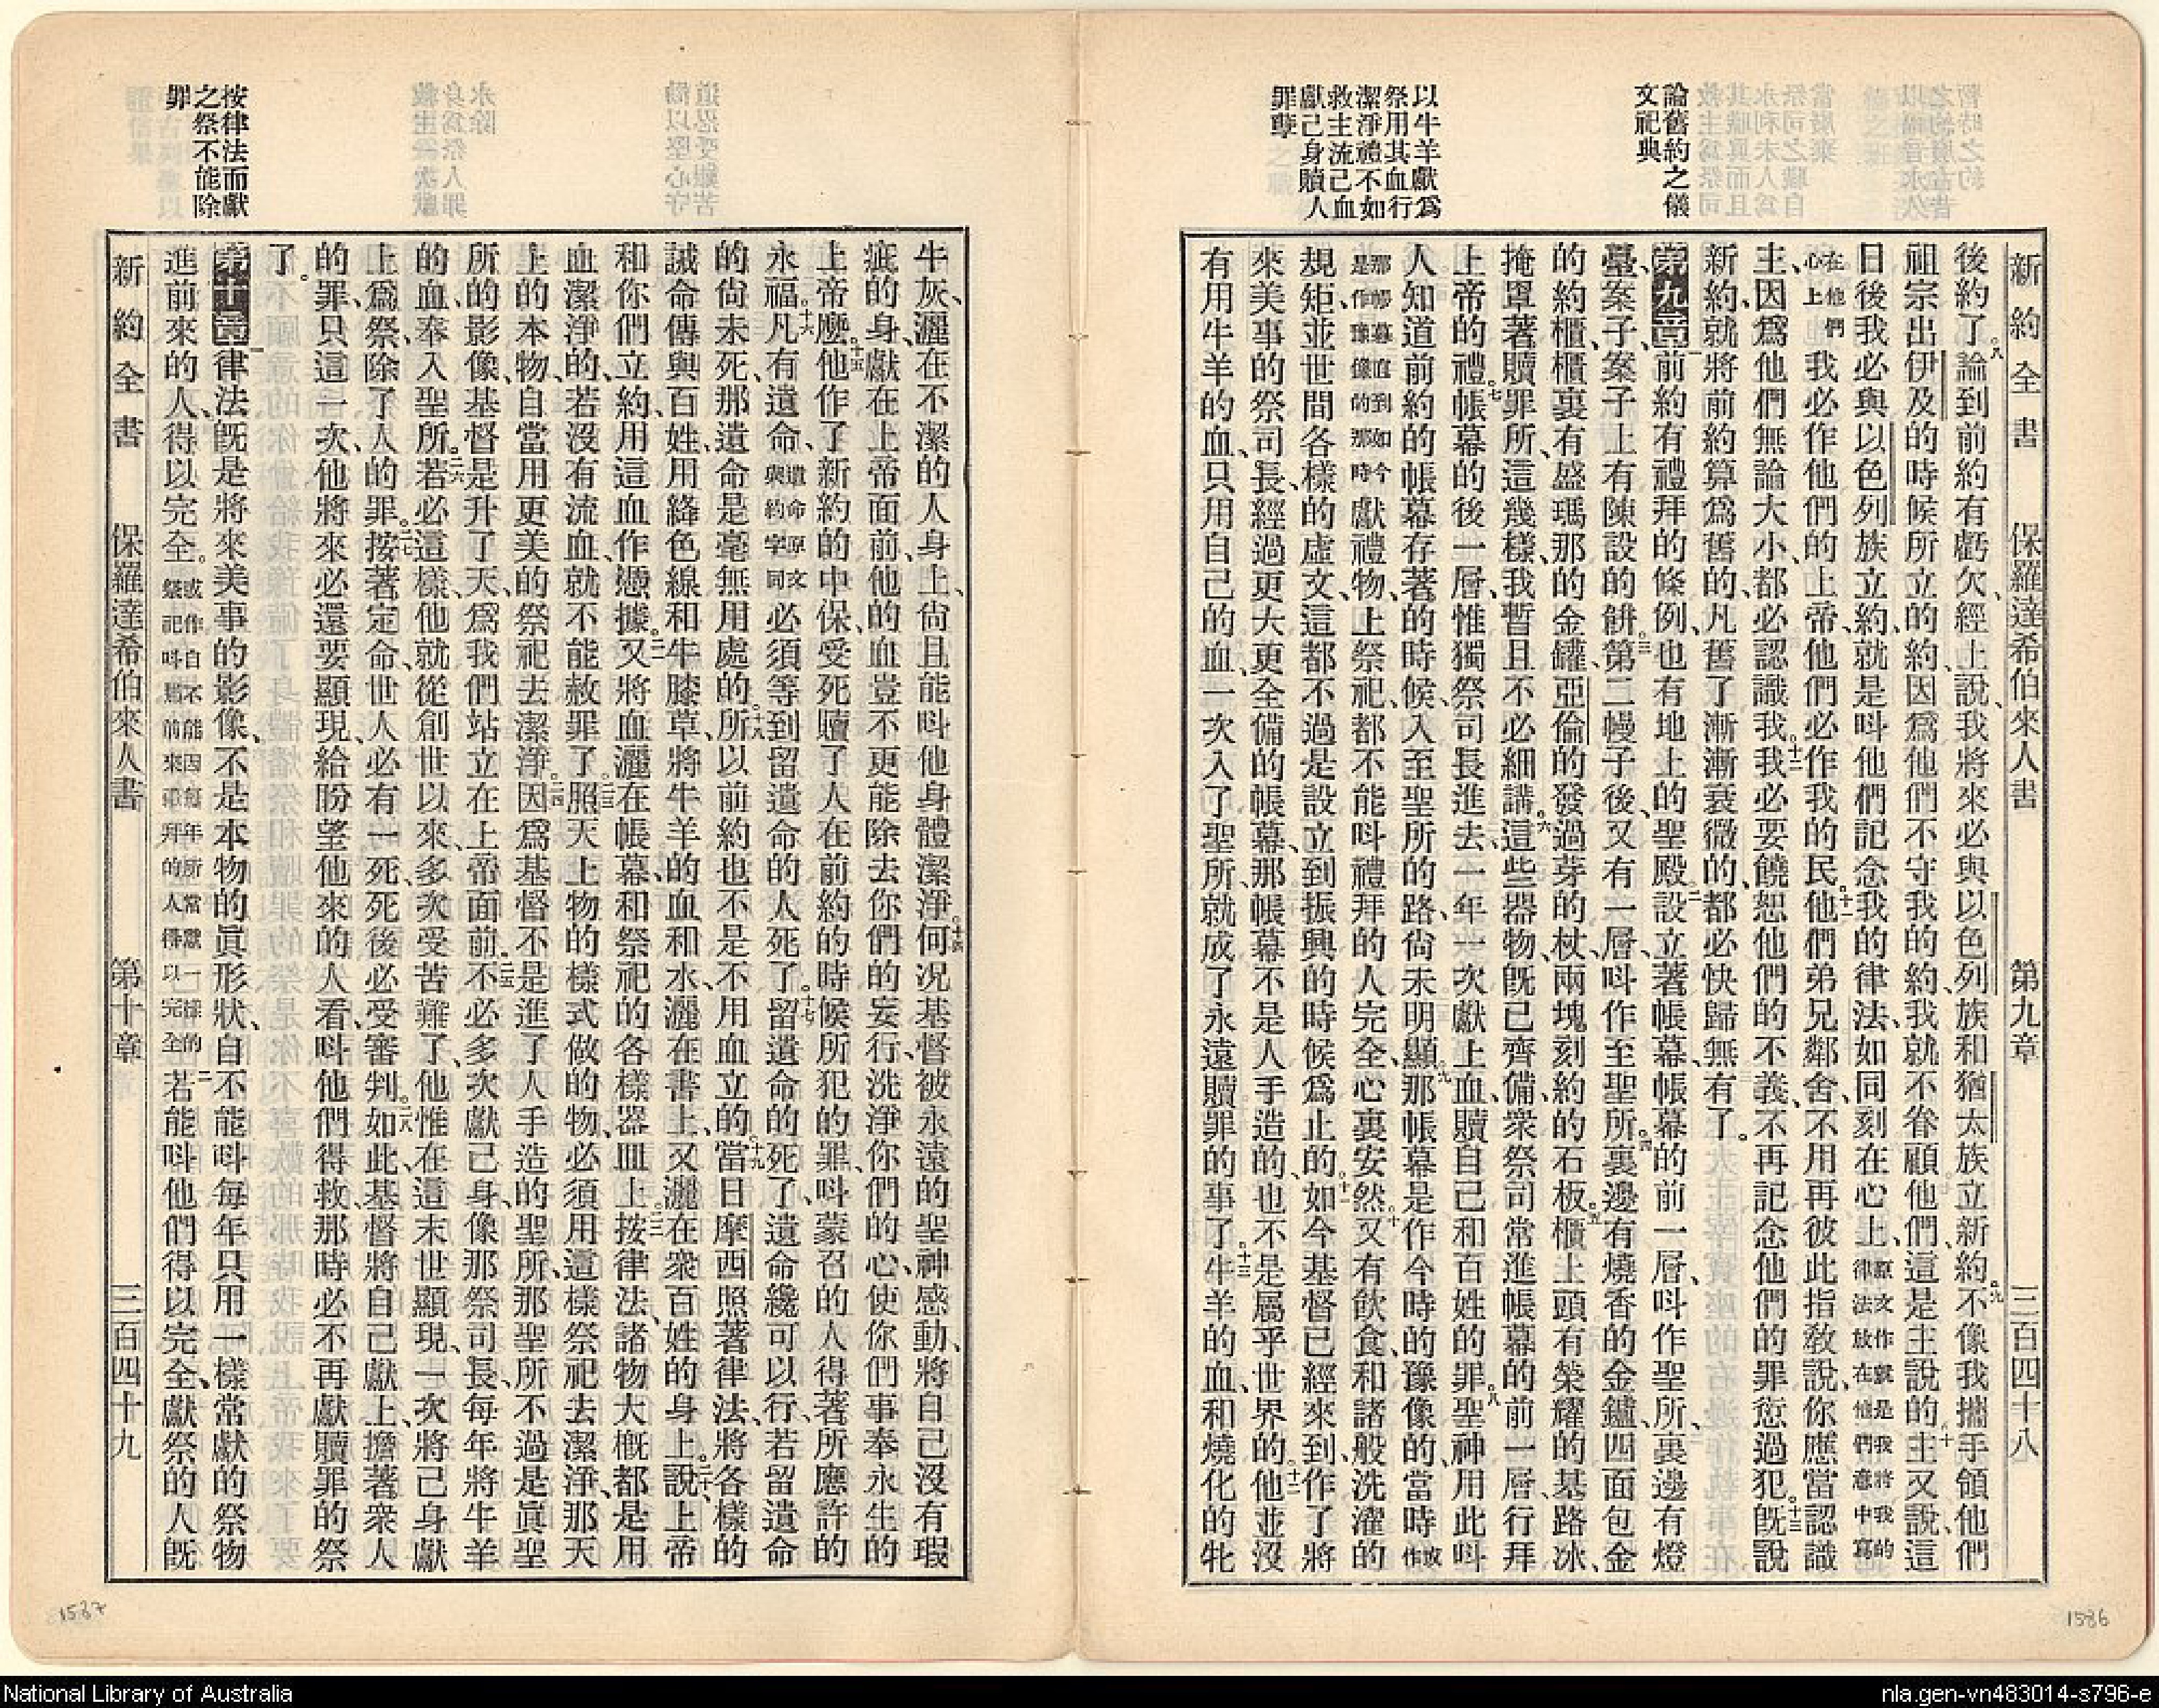 新約全書　保羅達希伯來人書　第九章　三百四十八
後約了。八論到前約有虧欠、經上說、我將來必與以色列族和猶太族立新約。九不像我攜手領他們
祖宗出伊及的時候所立的約、因爲他們不守我的約、我就不眷顧他們、這是主說的。十主又說、這
日後我必與以色列族立約、就是呌他們記念我的律法、如同刻在心上、原文作就是我將我的律法放在他們意中寫
在他們心上我必作他們的上帝、他們必作我的民。十一他們弟兄鄰舍、不用再彼此指敎說、你應當認識
主、因爲他們無論大小、都必認識我。十二我必要饒恕他們的不義、不再記念他們的罪愆過犯。十三旣說
新約、就將前約算爲舊的、凡舊了漸漸衰微的、都必快歸無有了。
第九章一前約有禮拜的條例、也有地上的聖殿。二設立著帳幕、帳幕的前一層、呌作聖所、裏邊有燈
臺、案子、案子上有陳設的餅。三第二幔子後、又有一層呌作至聖所。四裏邊有燒香的金鑪、四面包金
的約櫃、櫃裏有盛瑪那的金罐、亞倫的發過芽的杖、兩塊刻約的石板。五櫃上頭有榮耀的基路冰、
掩罩著贖罪所、這幾樣、我暫且不必細講。六這些器物、旣已齊備、衆祭司常進帳幕的前一層、行拜
上帝的禮。七帳幕的後一層、惟獨祭司長進去、一年一次、獻上血、贖自己和百姓的罪。八聖神用此呌
人知道前約的帳幕存著的時候、入至聖所的路、尙未明顯。九那帳幕是作今時的豫像的、當時或作
那帳幕直到如今是作豫像的那時獻禮物、上祭祀、都不能呌禮拜的人完全、心裏安然。十又有飮食、和諸般洗濯的
規矩、並世間各樣的虛文、這都不過是設立到振興的時候爲止的。十一如今基督已經來到、作了將
來美事的祭司長、經過更大更全備的帳幕、那帳幕不是人手造的、也不是屬乎世界的。十二他並沒
有用牛羊的血、只用自己的血、一次入了聖所、就成了永遠贖罪的事了。十三牛羊的血、和燒化的牝
論舊約之儀
文祀典
以牛羊獻爲
祭用其血行
潔淨禮不如
救主流己血
獻己身贖人
罪孽
牛灰、灑在不潔的人身上、尙且能呌他身體潔淨。十四何况基督被永遠的聖神感動、將自己沒有瑕
疵的身、獻在上帝面前、他的血豈不更能除去你們的妄行、洗淨你們的心、使你們事奉永生的
上帝麽。十五他作了新約的中保、受死贖了人在前約的時候所犯的罪、呌蒙召的人得著所應許的
永福。十六凡有遺命、遺命原文與約字同必須等到留遺命的人死了。十七留遺命的死了、遺命纔可以行、若留遺命
的尙未死、那遺命是毫無用處的。十八所以前約也不是不用血立的。十九當日摩西照著律法、將各樣的
誡命傳與百姓、用絳色線和牛膝草、將牛羊的血和水、灑在書上、又灑在衆百姓的身上。二十說、上帝
和你們立約、用這血作憑據。二一又將血灑在帳幕、和祭祀的各樣器皿上。二二按律法、諸物大槪都是用
血潔淨的、若沒有流血、就不能赦罪了。二三照天上物的樣式做的物、必須用這樣祭祀去潔淨、那天
上的本物、自當用更美的祭祀去潔淨。二四因爲基督不是進了人手造的聖所、那聖所不過是眞聖
所的影像、基督是升了天、爲我們站立在上帝面前。二五不必多次獻己身、像那祭司長、每年將牛羊
的血、奉入聖所。二六若必這樣、他就從創世以來、多次受苦難了、他惟在這末世顯現、一次將己身獻
上爲祭、除了人的罪。二七按著定命、世人必有一死、死後必受審判。二八如此、基督將自己獻上、擔著衆人
的罪、只這一次、他將來必還要顯現、給盼望他來的人看、呌他們得救、那時必不再獻贖罪的祭
了。
第十章一律法旣是將來美事的影像、不是本物的眞形狀、自不能呌每年只用一樣常獻的祭物
進前來的人、得以完全。或作自不能因每年所常獻一樣的祭祀呌進前來禮拜的人得以完全二若能呌他們得以完全、獻祭的人旣
新約全書　保羅達希伯來人書　第十章　三百四十九
按律法而獻
之祭不能除
罪
1587
1586
National Library of Australia
nla.gen-vn483014-s796-e